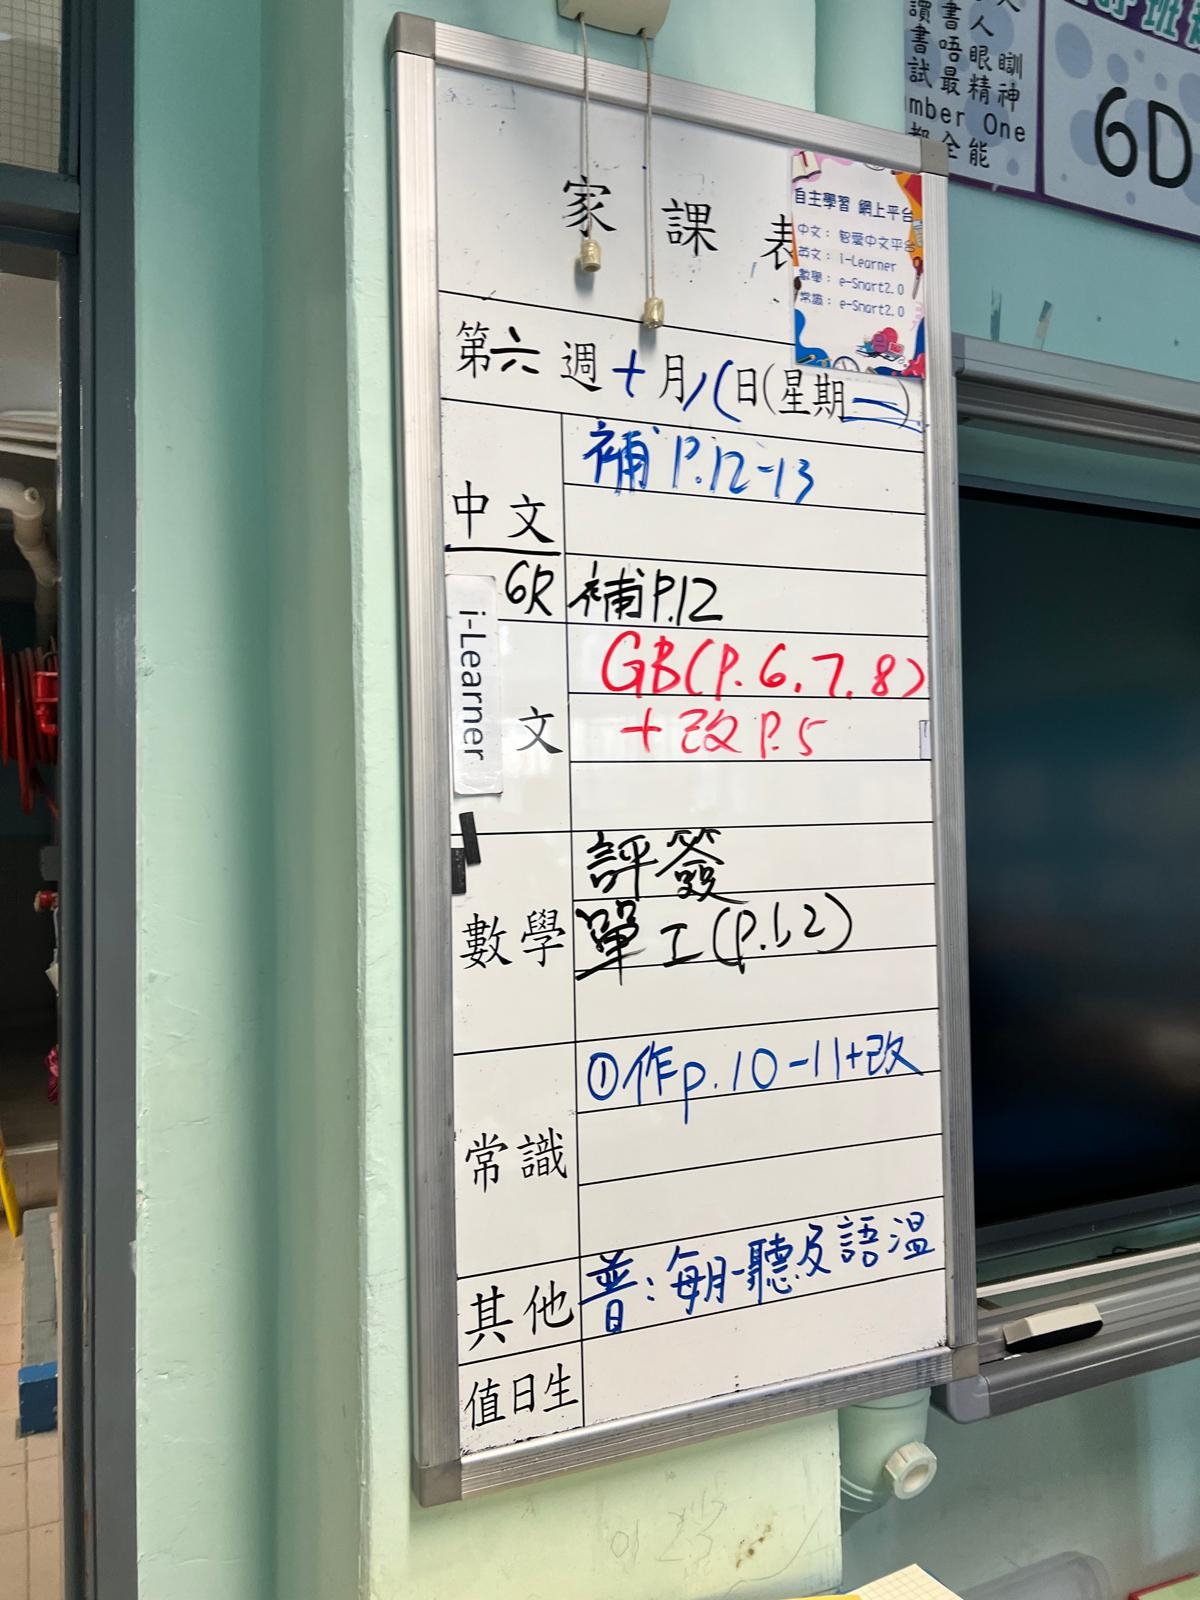 家課表
自主學習 網上平台
中文： 智愛中文平台
英文： i-Learner
數學： e-Smart2.0
常識： e-Smart2.0
第六週十月 日(星期一)
中文
補 P.12-13
6R
補 P.12
i-Learner
文
GB(P.6.7.8)
+改 P.5
數學
評簽
單工(P.1,2)
常識
①作p.10-11+改
其他
普：每月一聽及語溫
值日生
讀書人
書唔眼瞓
試最精神
mber One
都全能
班
6D